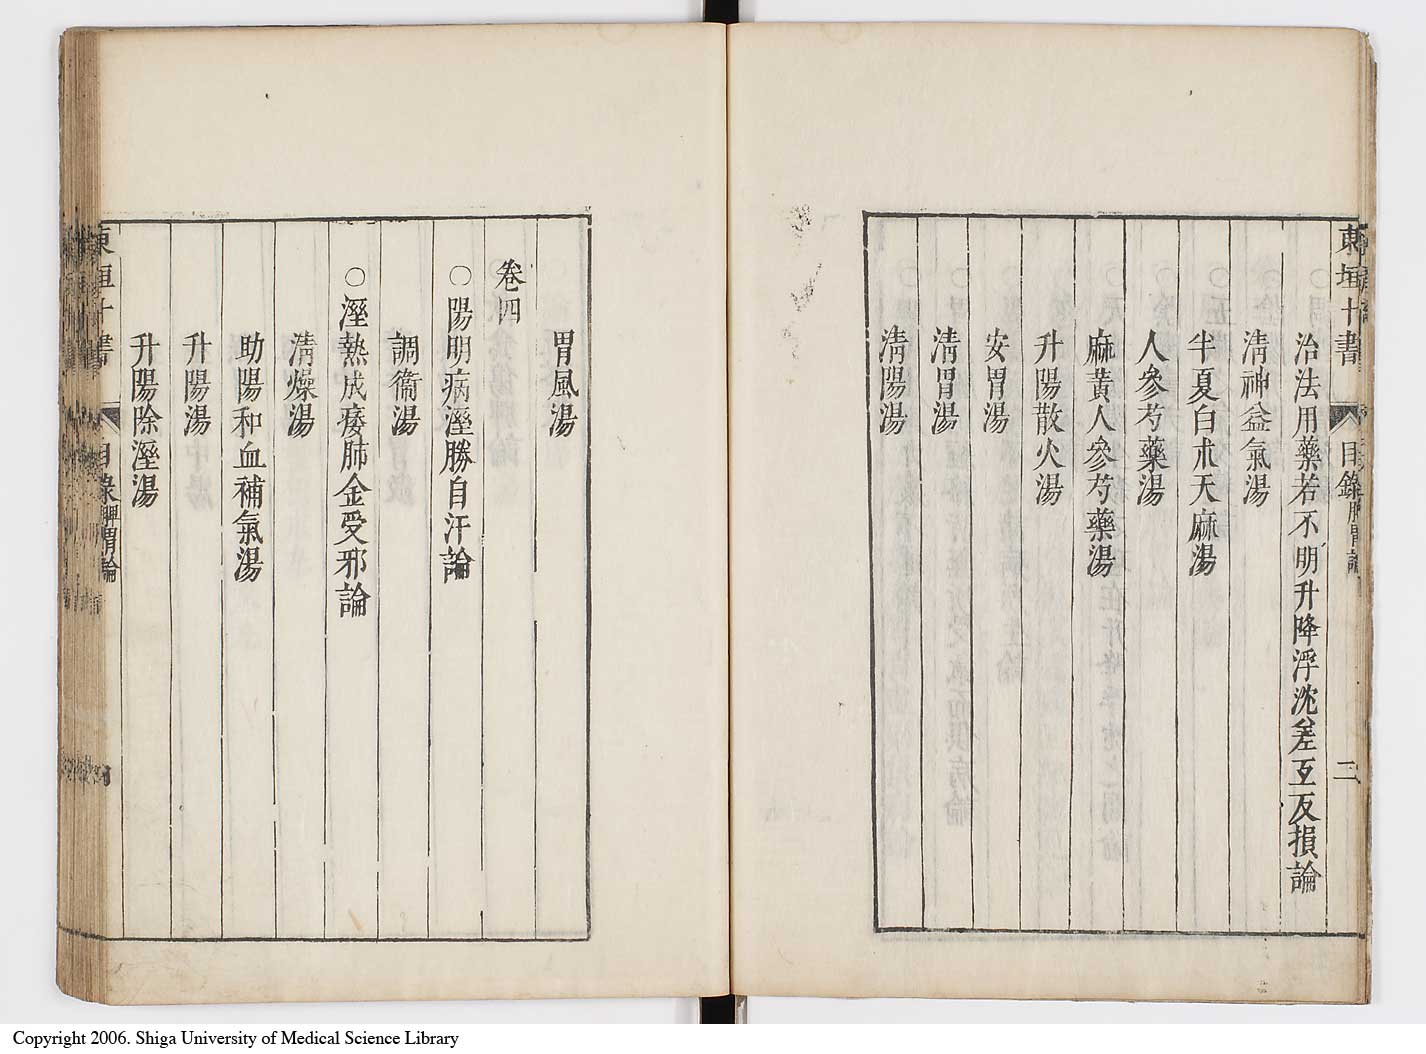 東垣十書 目錄脾胃論 二
治法用藥若不明升降浮沈差互反損論
淸神益氣湯
半夏白朮天麻湯
人參芍藥湯
麻黃人參芍藥湯
升陽散火湯
安胃湯
淸胃湯
淸陽湯
胃風湯
卷四
○陽明病溼勝自汗論
調衞湯
○溼熱成痿肺金受邪論
淸燥湯
助陽和血補氣湯
升陽湯
升陽除溼湯
東垣十書 目錄脾胃論
Copyright 2006. Shiga University of Medical Science Library